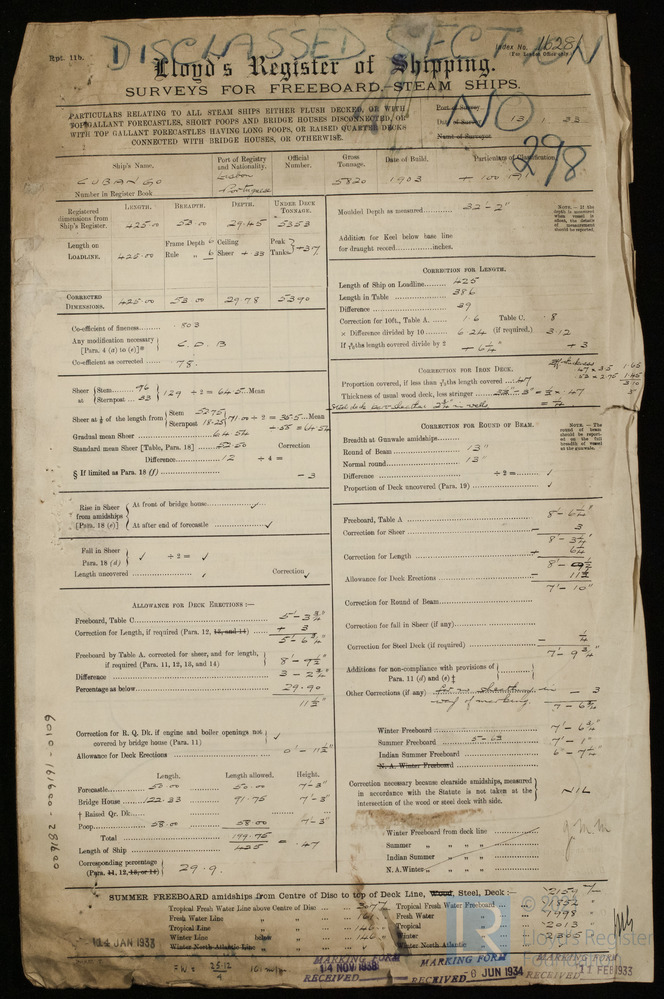 DISCLASSED SECTION
Rpt. 11b.
Index No. 16281
(For London Office only
Lloyd's Register of Shipping.
SURVEYS FOR FREEBOARD.—STEAM SHIPS.
PARTICULARS RELATING TO ALL STEAM SHIPS EITHER FLUSH DECKED, OR WITH
TOPGALLANT FORECASTLES, SHORT POOPS AND BRIDGE HOUSES DISCONNECTED, OR
WITH TOP GALLANT FORECASTLES HAVING LONG POOPS, OR RAISED QUARTER DECKS
CONNECTED WITH BRIDGE HOUSES, OR OTHERWISE.
Port of Survey
Date of Survey 13 . 1 . 33
Name of Surveyor
298
Ship's Name.
CUBANGO
Number in Register Book
Port of Registry and Nationality.
Lisbon
Portuguese
Official Number.
Gross Tonnage.
5820
Date of Build.
1903
Particulars of Classification.
+ 100 A1
LENGTH. BREADTH. DEPTH. UNDER DECK TONNAGE.
Registered dimensions from Ship's Register. 425.00 53.00 29.45 5353
Length on LOADLINE. 425.00 Frame Depth Ceiling Peak Tanks +37
Rule " 6 Sheer + 33
CORRECTED DIMENSIONS. 425.00 53.00 29.78 5390
Co-efficient of fineness .803
Any modification necessary [Para. 4 (a) to (e)]* C.D.B
Co-efficient as corrected .78
Sheer at Stem 96 Sternpost 33 129 ÷ 2 = 64.5 Mean
Sheer at ⅛ of the length from Stem 52.75 Sternpost 18.25 71.00 ÷ 2 = 35.5 Mean
÷ .55 = 64.54
Gradual mean Sheer 64.54
Standard mean Sheer [Table, Para. 18] 52.50 Correction
Difference 12 ÷ 4 =
§ If limited as Para. 18 (f) - 3
Rise in Sheer from amidships [Para. 18 (e)] At front of bridge house ✓
At after end of forecastle ✓
Fall in Sheer Para. 18 (d) ✓ ÷ 2 = ✓
Length uncovered ✓ Correction ✓
ALLOWANCE FOR DECK ERECTIONS :—
Freeboard, Table C 5'-3¾"
Correction for Length, if required (Para. 12, 13, and 14) + 3
5'-6¾"
Freeboard by Table A. corrected for sheer, and for length, if required (Para. 11, 12, 13, and 14) 8'-9½"
Difference 3 - 2¾"
Percentage as below 29.90
11½"
Correction for R. Q. Dk. if engine and boiler openings not covered by bridge house (Para. 11) ✓
Allowance for Deck Erections 0'-11½"
Length. Length allowed. Height.
Forecastle 50.00 50.00 7'-3"
Bridge House 122.33 91.75 7'-3"
† Raised Qr. Dk.
Poop 58.00 58.00 7'-3"
Total 199.75
Length of Ship 425 = .47
Corresponding percentage (Para. 11, 12, 13, or 14) 29.9.
6010-161600-281600
Moulded Depth as measured 32'-2"
NOTE.—If the depth is measured when vessel is afloat, the details of measurement should be reported.
Addition for Keel below base line
for draught record inches.
CORRECTION FOR LENGTH.
Length of Ship on Loadline 425
Length in Table 386
Difference 39
Correction for 10ft., Table A. 1.6 Table C. .8
× Difference divided by 10 6.24 (if required.) 3.12
If 6/10ths length covered divide by 2 + 6¼" + 3
CORRECTION FOR IRON DECK.
Proportion covered, if less than 7/10ths length covered .47
Thickness of usual wood deck, less stringer
CORRECTION FOR ROUND OF BEAM.
NOTE.—The round of beam should be reported on the full breadth of vessel at the gunwale.
Breadth at Gunwale amidships
Round of Beam 13"
Normal round 13"
Difference ÷ 2 = ✓
Proportion of Deck uncovered (Para. 19) ✓
Freeboard, Table A 8'-6¼"
Correction for Sheer - 3
8'-3¼"
Correction for Length + 6¼
8'-9½
Allowance for Deck Erections - 11½
7'-10"
Correction for Round of Beam
Correction for fall in Sheer (if any)
Correction for Steel Deck (if required) - ¼
7'-9¾"
Additions for non-compliance with provisions of Para. 11 (d) and (e) ‡
Other Corrections (if any) for no sheathing in way of - 3
7-6¾"
Winter Freeboard 7'-6¾"
Summer Freeboard 5-63 7'-1"
Indian Summer Freeboard 6'-7½"
N. A. Winter Freeboard
Correction necessary because clearside amidships, measured in accordance with the Statute is not taken at the intersection of the wood or steel deck with side. NIL
Winter Freeboard from deck line
Summer " " " "
Indian Summer " " " "
N. A. Winter " " " "
SUMMER FREEBOARD amidships from Centre of Disc to top of Deck Line, Wood, Steel, Deck :— 2159
Tropical Fresh Water Line above Centre of Disc 307 Tropical Fresh Water Freeboard 1852
Fresh Water Line " " 161 Fresh Water " 1998
Tropical Line " " 146 Tropical " 2013
Winter Line below " 146 Winter " 2305
Winter North Atlantic Line " " Winter North Atlantic "
14 JAN 1933
MARKING FORM
14 NOV 1933
RECEIVED
MARKING FORM
RECEIVED JUN 1934
MARKING FORM
RECEIVED 11 FEB 1933
LR
Lloyd's Register
Foundation